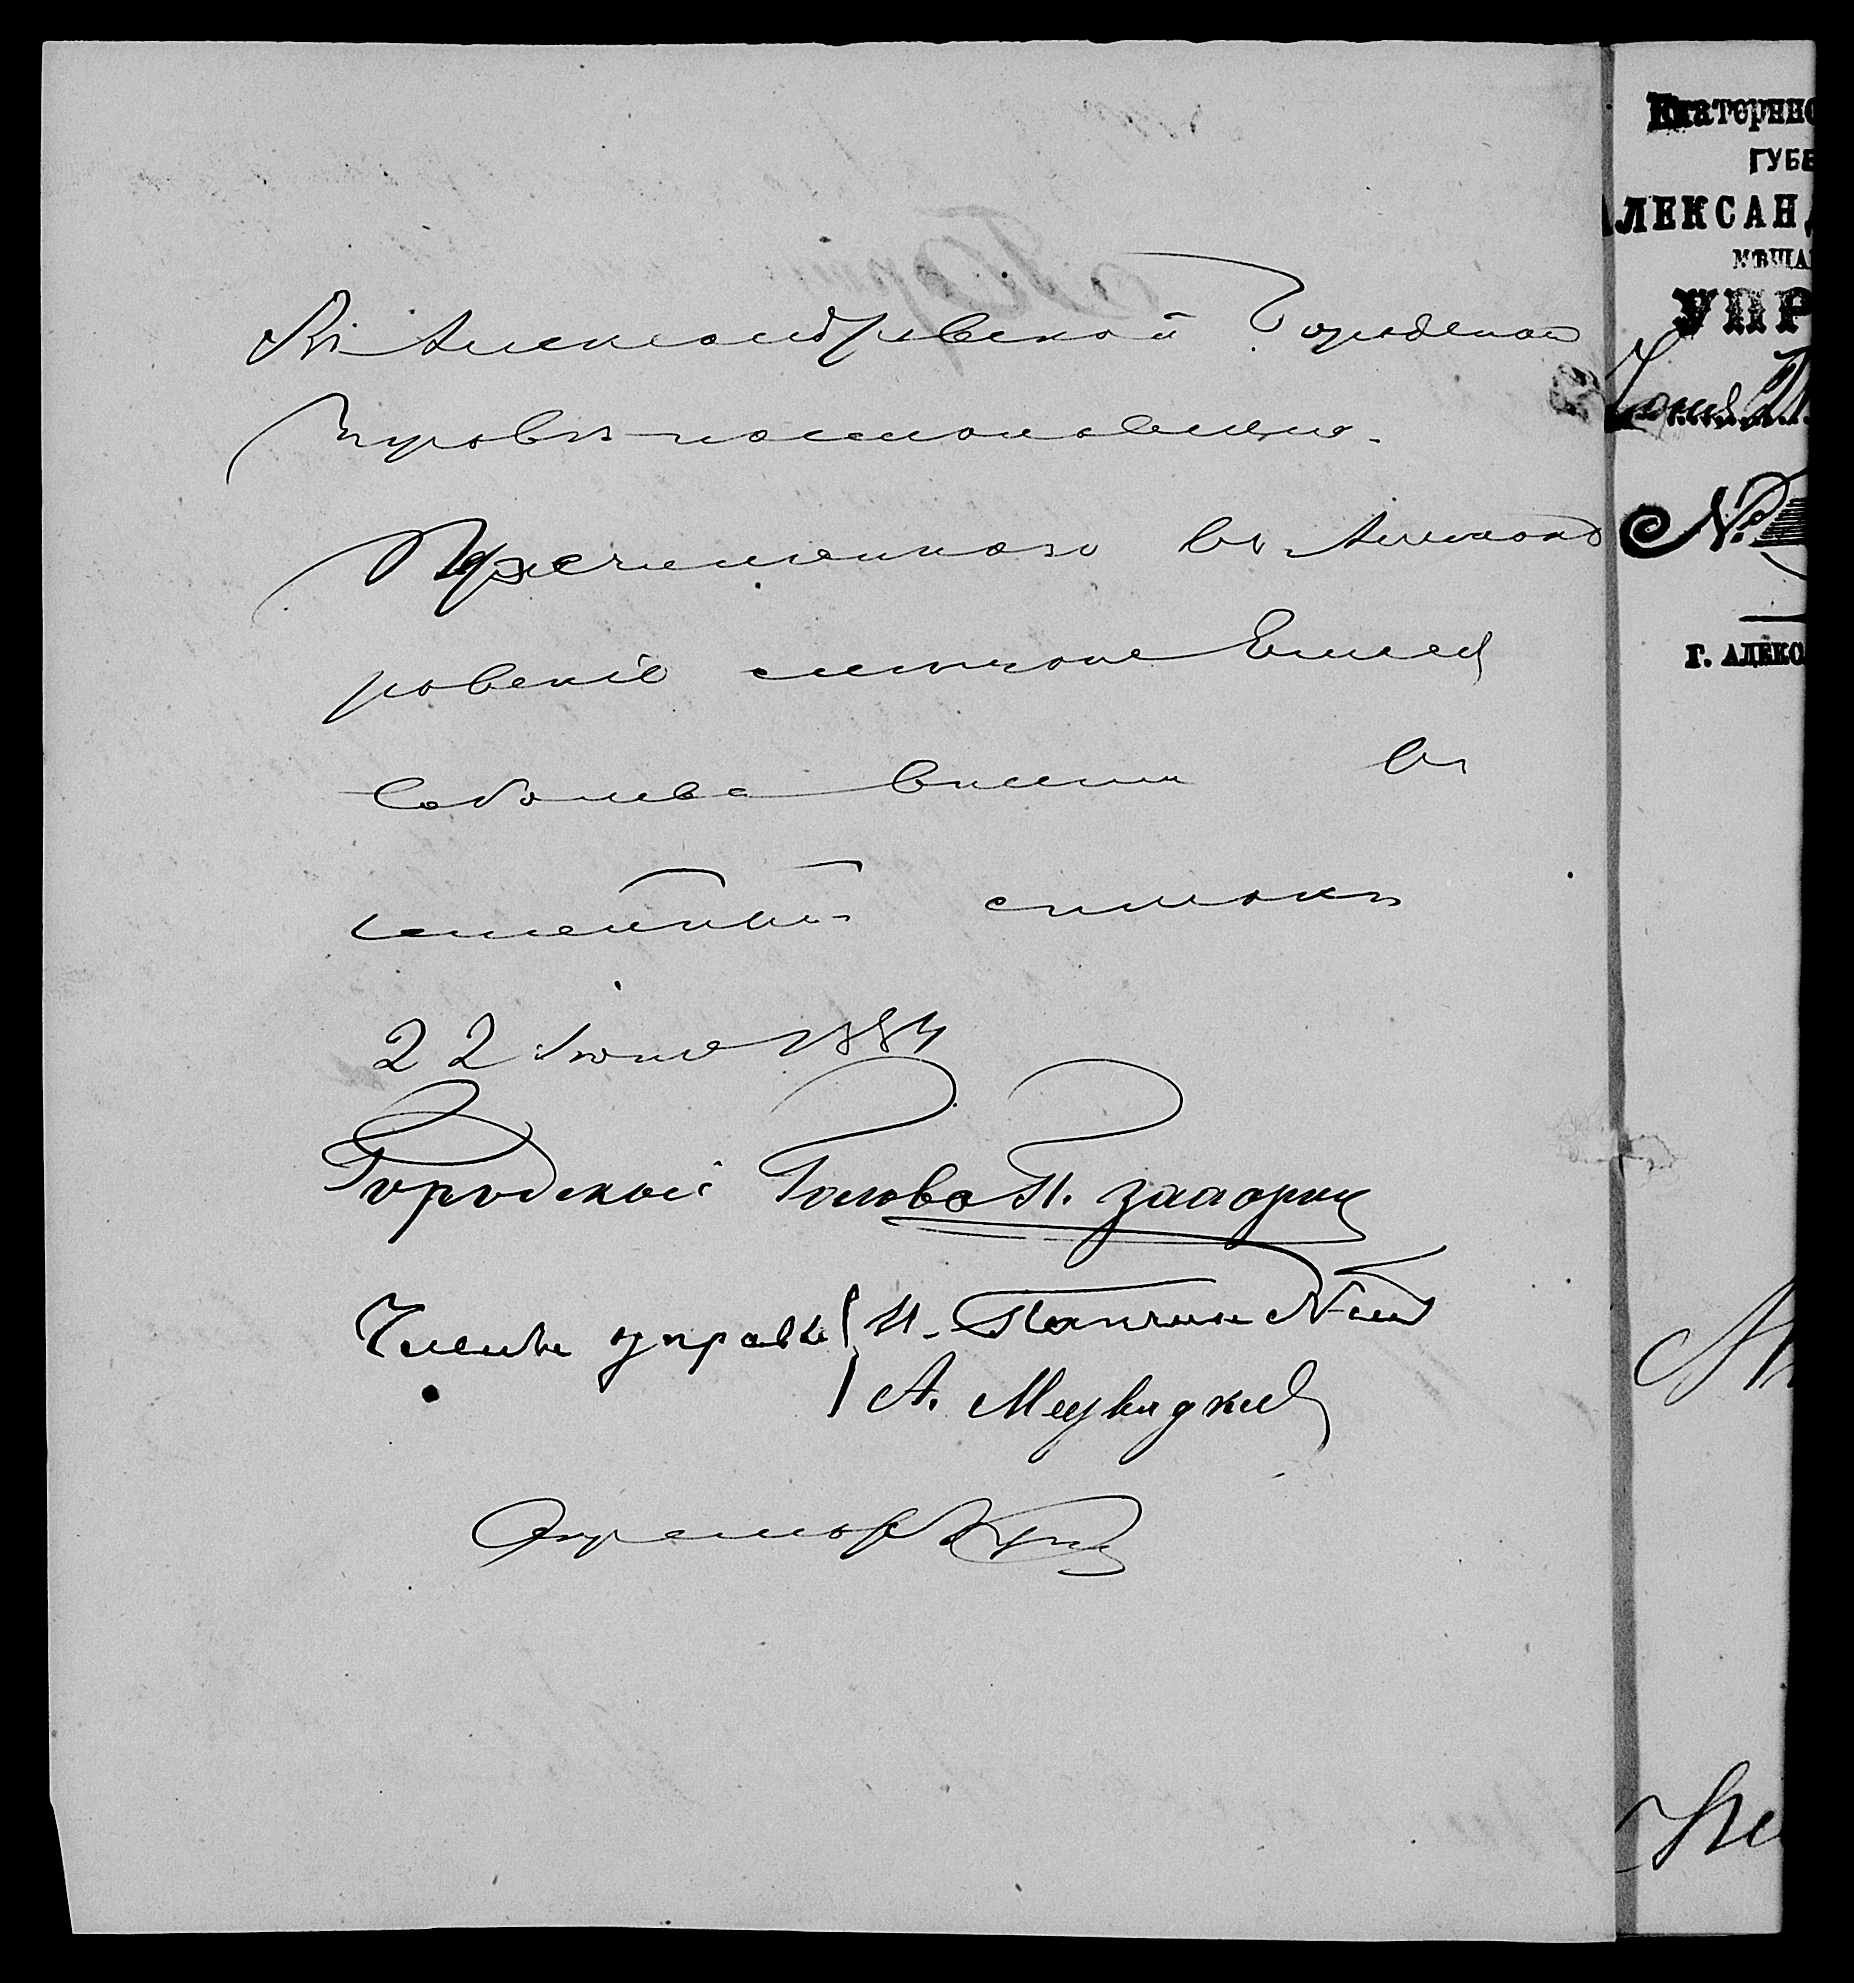 Въ Александровской Городской
Управѣ постановлено.
Перечисленнаго въ Александ
ровскіе мѣщане
Соболева внести въ
семейный списокъ
22 Іюня 1884
Городской Голова П. Захарин
Члены управы И.
А. Медведкив
Секретарь
Екатерино
ГУБЕ
АЛЕКСАНД
МѢЩА
УПР
Іюня
№
Г. АЛЕКС